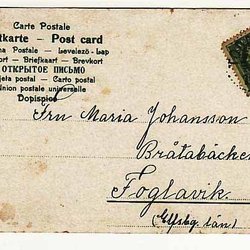 Carte Postale
tkarte – Post card
na Postale – Levelező-Lap
ort – Briefkaart – Brevkort
ОТКРЫТОЕ ПИСЬМО
jeta postal – Carto postal
Union postale universelle
Dopisnice
Fru Maria Johansson
Bråtabäcke
Foglavik
(Elfsbg län)